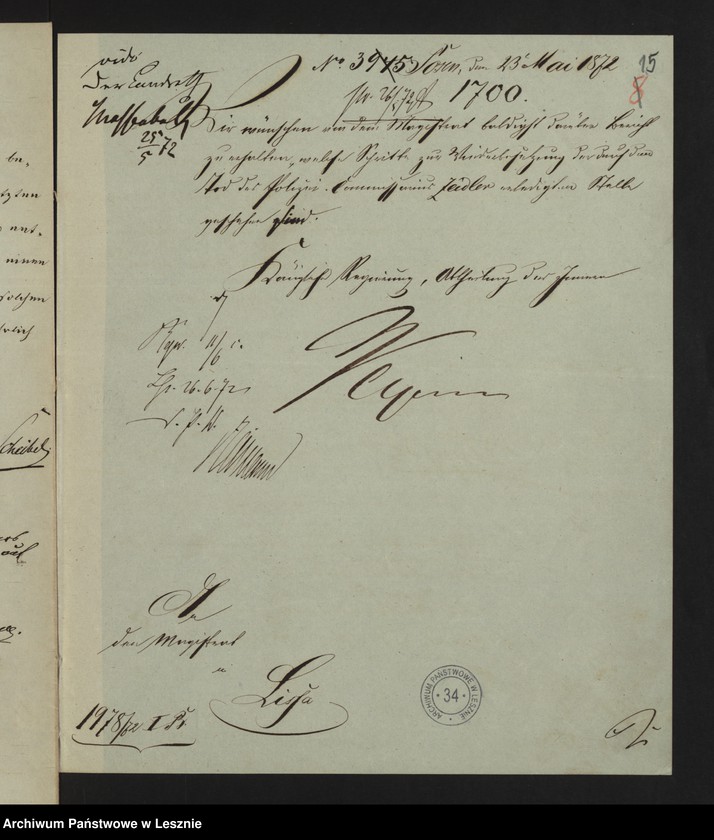 vidi
Der Landrath
25/5 72
No 3975 Posen, den 23t Mai 1872
15
8
pr. 26/5 72
1700.
Wir wünschen von dem Magistrat baldigst darüber Bericht
zu erhalten, welche Schritte zur Wiederbesetzung der durch den
Tod des Polizei-Commissarius Zeidler erledigten Stelle
geschehen sind.
Königliche Regierung, Abtheilung des Innern
11/6 c.
26.6.72
An
den Magistrat
in
Lissa
1978/72 I
ARCHIWUM PAŃSTWOWE W LESZNIE
34
Archiwum Państwowe w Lesznie